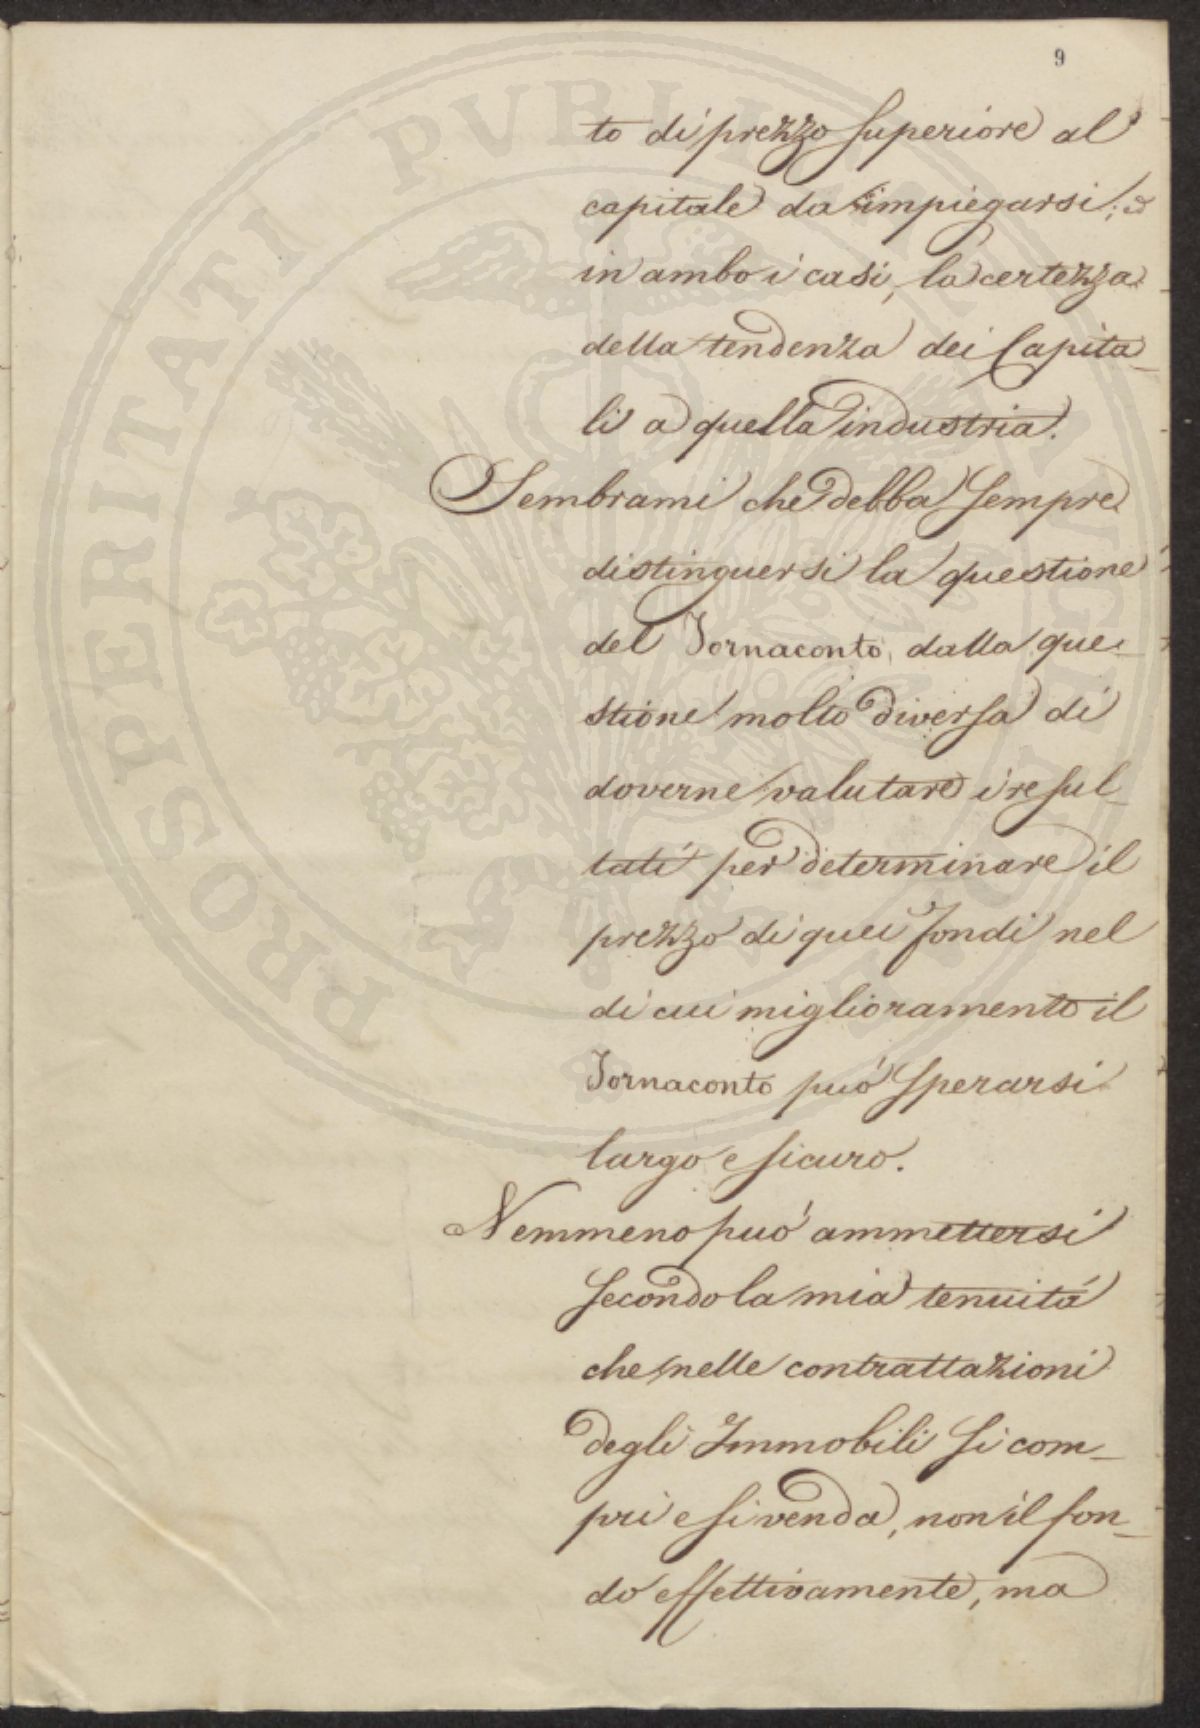 9
to di prezzo superiore al
capitale da impiegarsi; e
in ambo i casi, la certezza
della tendenza dei Capita-
li a quella industria.
Sembrami che debba sempre
distinguersi la questione
del Tornaconto, dalla que-
stione molto diversa di
doverne valutare i resul-
tati per determinare il
prezzo di quei fondi nel
di cui miglioramento il
Tornaconto può sperarsi
largo e sicuro.
Nemmeno può ammettersi
secondo la mia tenuità
che nelle contrattazioni
degli Immobili si com-
pri e si venda, non il fon-
do effettivamente, ma
PROSPERITATI PUBLICAE